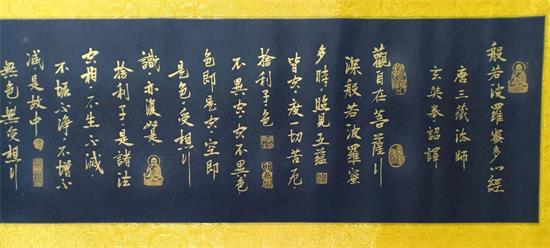 般若波羅蜜多心經
唐三藏法師
玄奘奉詔譯
觀自在菩薩行
深般若波羅蜜
多時照見五蘊
皆空度一切苦厄
捨利子色
不異空空不異色
色即是空空即
是色受想行
識亦復如是
捨利子是諸法
空相不生不滅
不垢不淨不增不
減是故空中
無色無受想行